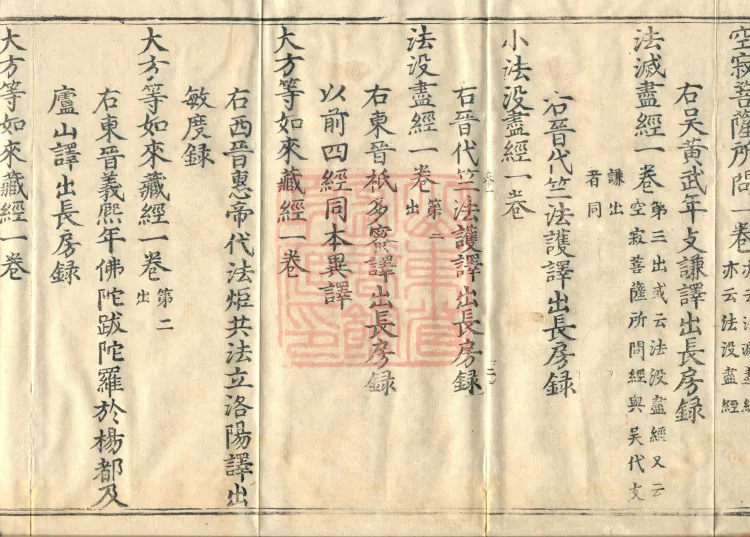 空寂菩薩所問一卷亦云法滅盡經亦云法没盡經
右吴黄武年支謙譯出長房録
法滅盡經一卷第三出或云法没盡經又云空寂菩薩所問經與吴代支
謙出者同
右晉代竺法護譯出長房録
小法没盡經一卷
右晉代竺法護譯出長房録
法没盡經一卷第二出
右東晉祇多蜜譯出長房録
以前四經同本異譯
大方等如來藏經一卷
右西晉惠帝代法炬共法立洛陽譯出
敏度録
大方等如來藏經一卷第二出
右東晉義熙年佛陀跋陀羅於楊都及
廬山譯出長房録
大方等如來藏經一卷